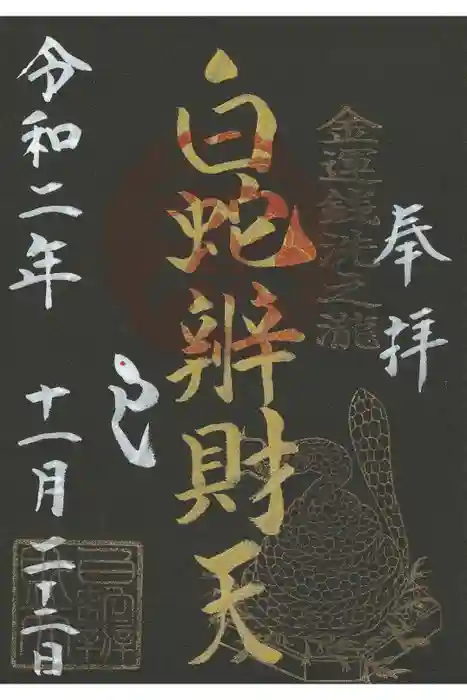 奉拝
金運銭洗之瀧
白蛇辨財天
巳
令和二年 十一月 二十二日